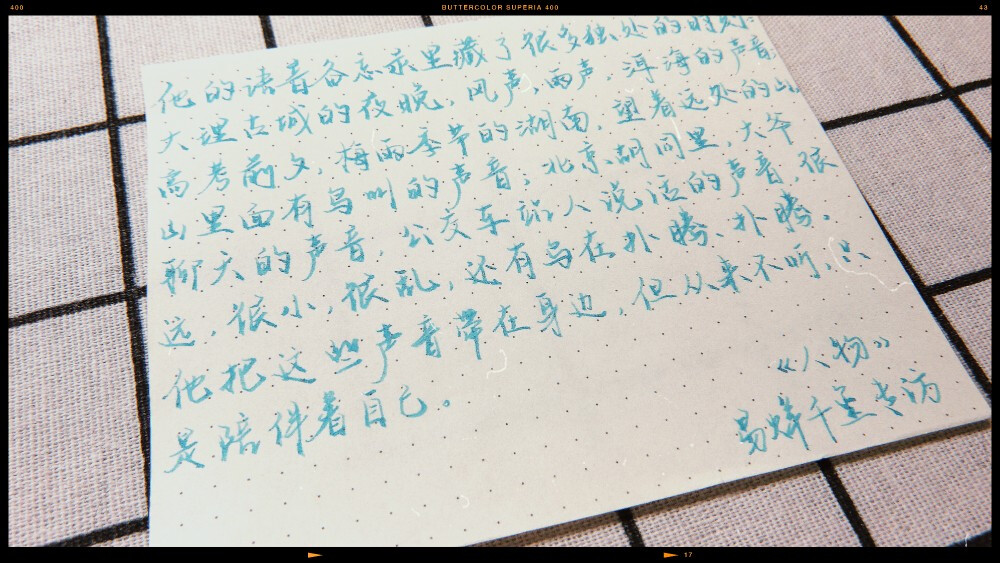 400 BUTTERCOLOR SUPERIA 400 43
他的语音备忘录里藏了很多独处的时刻:
大理古城的夜晚,风声,雨声,洱海的声音
高考前夕,梅雨季节的湖南,望着远处的山,
山里面有鸟叫的声音;北京胡同里,大爷
聊天的声音,公交车站人说话的声音,很
远,很小,很乱,还有鸟在扑腾、扑腾。
他把这些声音带在身边,但从来不听,只
是陪伴着自己。
《人物》
易烊千玺专访
17